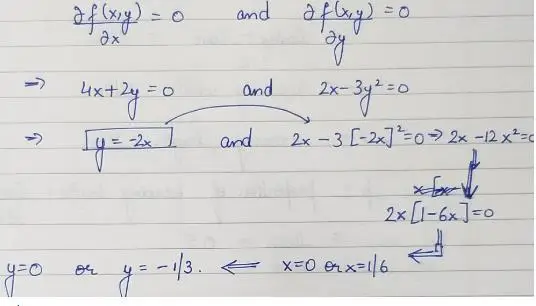 ∂f(x,y)/∂x = 0 and ∂f(x,y)/∂y = 0
⇒ 4x+2y=0 and 2x-3y²=0
⇒ y = -2x and 2x-3[-2x]²=0 ⇒ 2x-12x²=0
2x[1-6x]=0
y=0 or y = -1/3. ⇐ x=0 or x=1/6